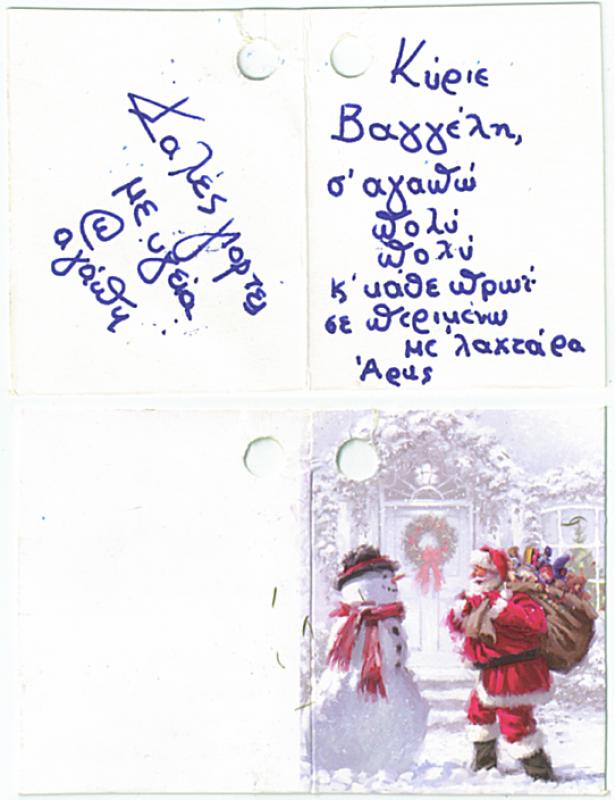 Καλές γιορτές
με υγεία
@
αγάπη
Κύριε
Βαγγέλη,
σ' αγαπώ
πολύ
πολύ
κ' κάθε πρωί
σε περιμένω
με λαχτάρα
Άρης